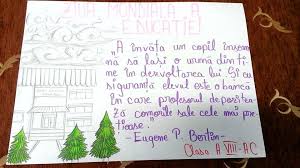 ZIUA MONDIALĂ A
EDUCAȚIEI
„A învăța un copil înseamnă
să lași o urmă din ti-
ne în dezvoltarea lui. Și cu
siguranță elevul este o bancă
în care profesorul depozitea-
ză comorile sale cele mai pre-
țioase."
-Eugene P. Bertin-
Clasa A VIII-A C